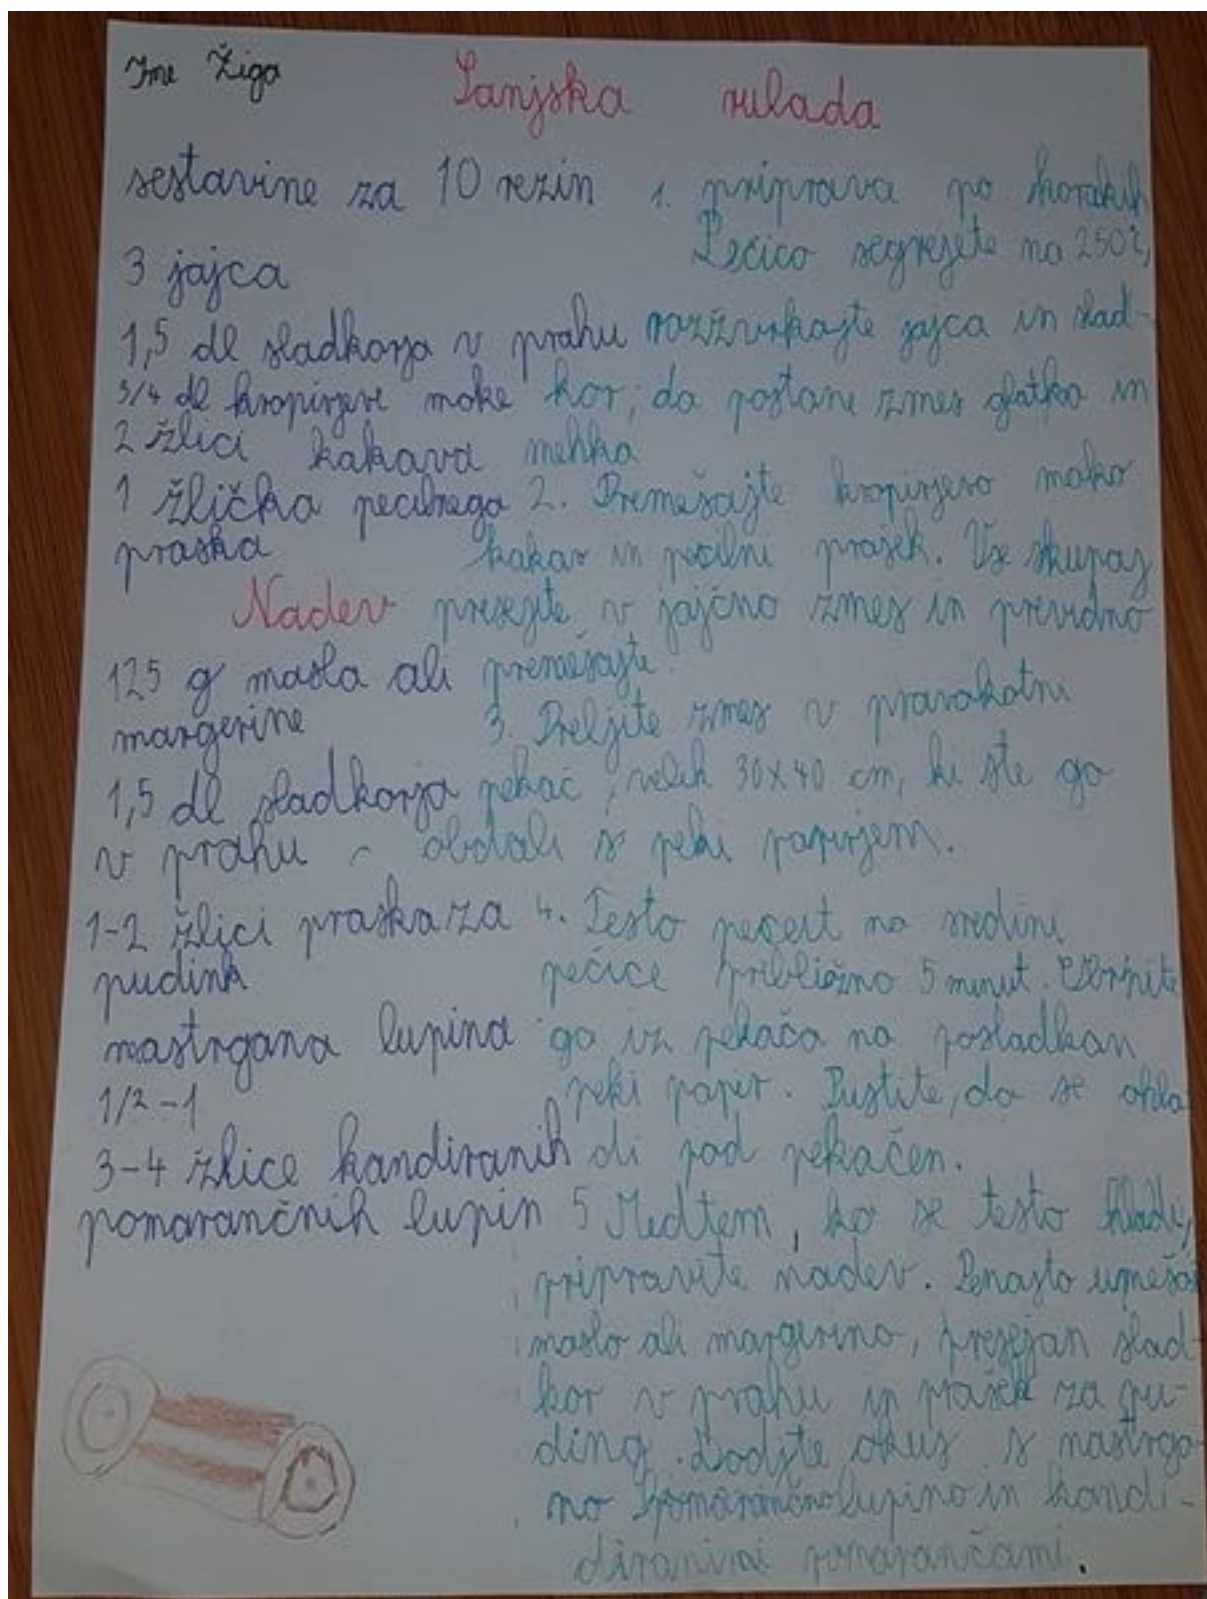 Ime Žiga
Sanjska rulada
sestavine za 10 rezin
3 jajca
1,5 dl sladkorja v prahu
3/4 dl kropirjeve moke
2 žlici kakava
1 žlička pecilnega
praska
Nadev
125 g masla ali
margerine
1,5 dl sladkorja
v prahu
1-2 žlici praska za
pudink
nastrgana lupina
1/2-1
3-4 žlice kandiranih
pomarančnih lupin
1. priprava po korakih
Pečico segrejete na 250°C,
razžvrkajte jajca in slad-
kor, da postane zmes glatka in
mehka
2. Premešajte kropirjevo moko
kakav in pecilni prašek. Vse skupaj
presejte v jajčno zmes in previdno
premešajte.
3. Prelijte zmes v pravokotni
pekač, velik 30x40 cm, ki ste go
obdali s peki papirjem.
4. Testo na sredini
pečice približno 5 minut.
go iz pekača na posladkan
peki papir. Pustite, da se ohla
di pod pekačen.
5 Medtem, ko se testo hladi,
pripravite nadev. Penasto
maslo ali margerino, presejan slad-
kor v prahu in prašek za pu-
ding. Dodjte okus s nastrga-
no pomarančno lupino in kandi-
diranimi pomarančami.